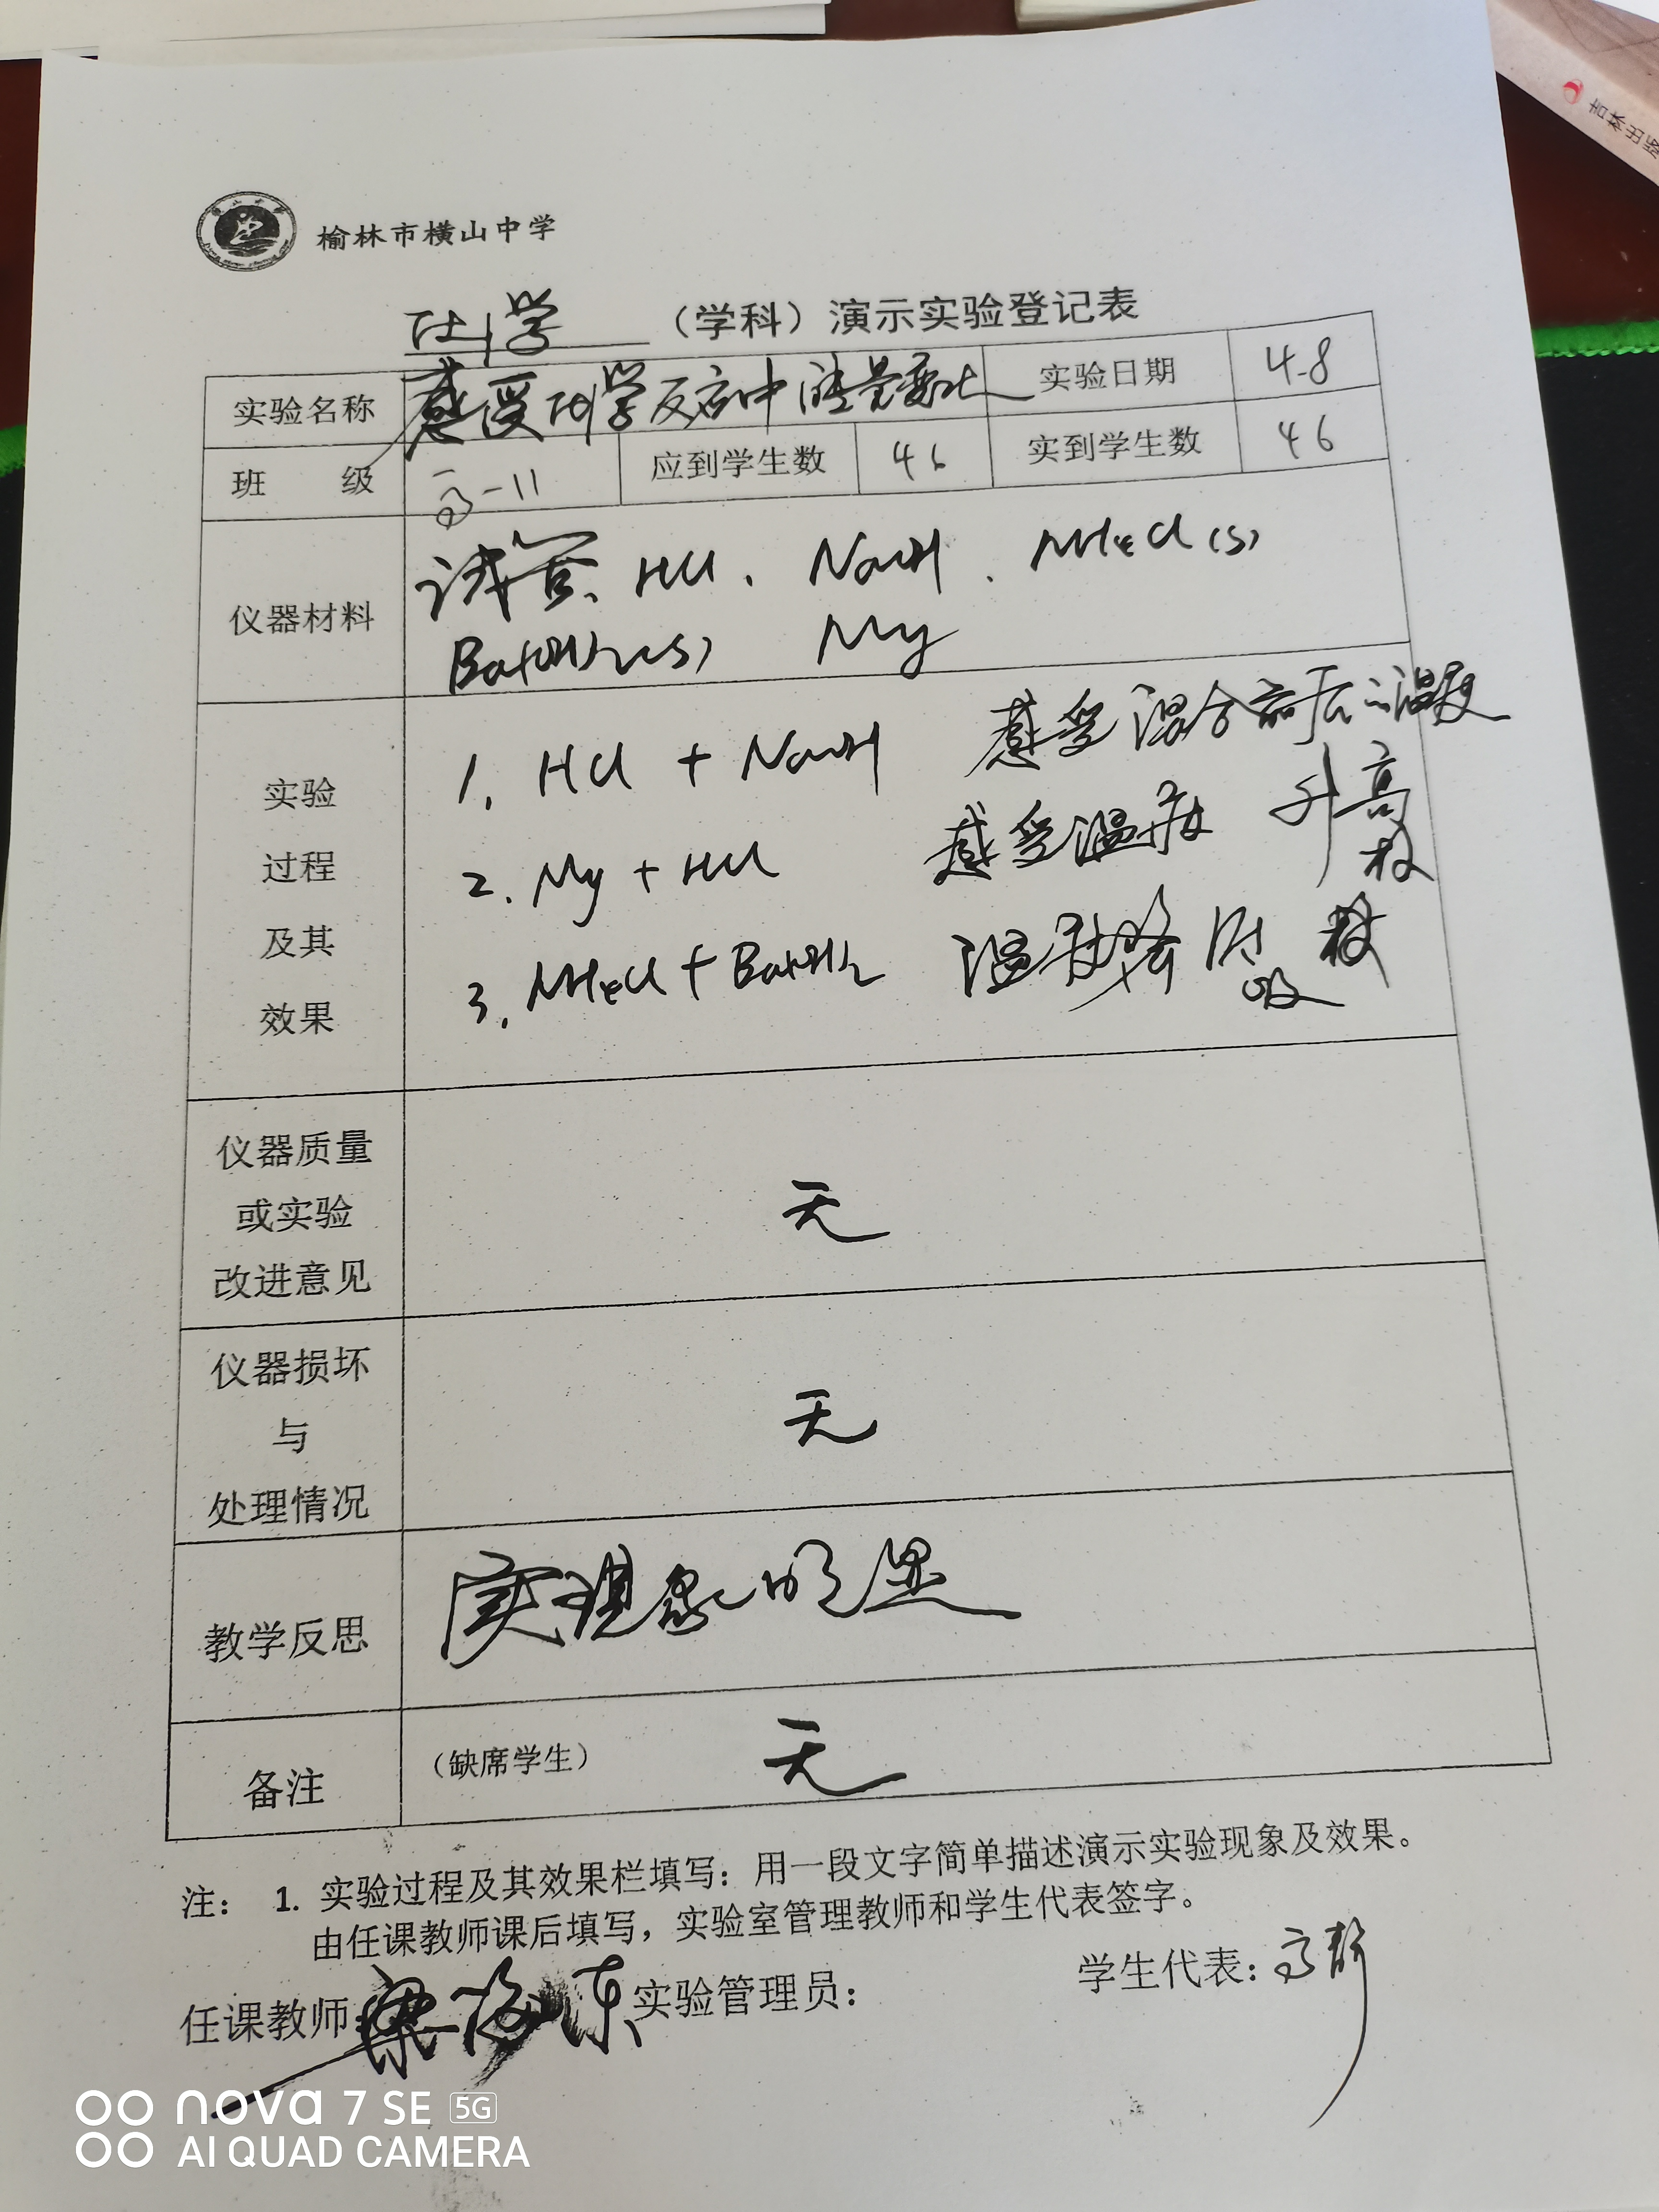 吉林出版
榆林市横山中学
化学 (学科)演示实验登记表
实验名称 感受化学反应中能量变化 实验日期 4-8
班 级 高一-11 应到学生数 46 实到学生数 46
仪器材料
试管、HCl、NaOH、NH4Cl(s)
Ba(OH)2(s) Mg
实验
过程
及其
效果
1. HCl + NaOH 感受混合前后温度
2. Mg + HCl 感受温度 升高
3. NH4Cl + Ba(OH)2 温度降低 吸
仪器质量
或实验
改进意见
无
仪器损坏
与
处理情况
无
教学反思
实现象明显
备注 (缺席学生) 无
注: 1. 实验过程及其效果栏填写:用一段文字简单描述演示实验现象及效果。
由任课教师课后填写,实验室管理教师和学生代表签字。
任课教师: 梁 东 实验管理员: 学生代表: 高
nova 7 SE 5G
AI QUAD CAMERA